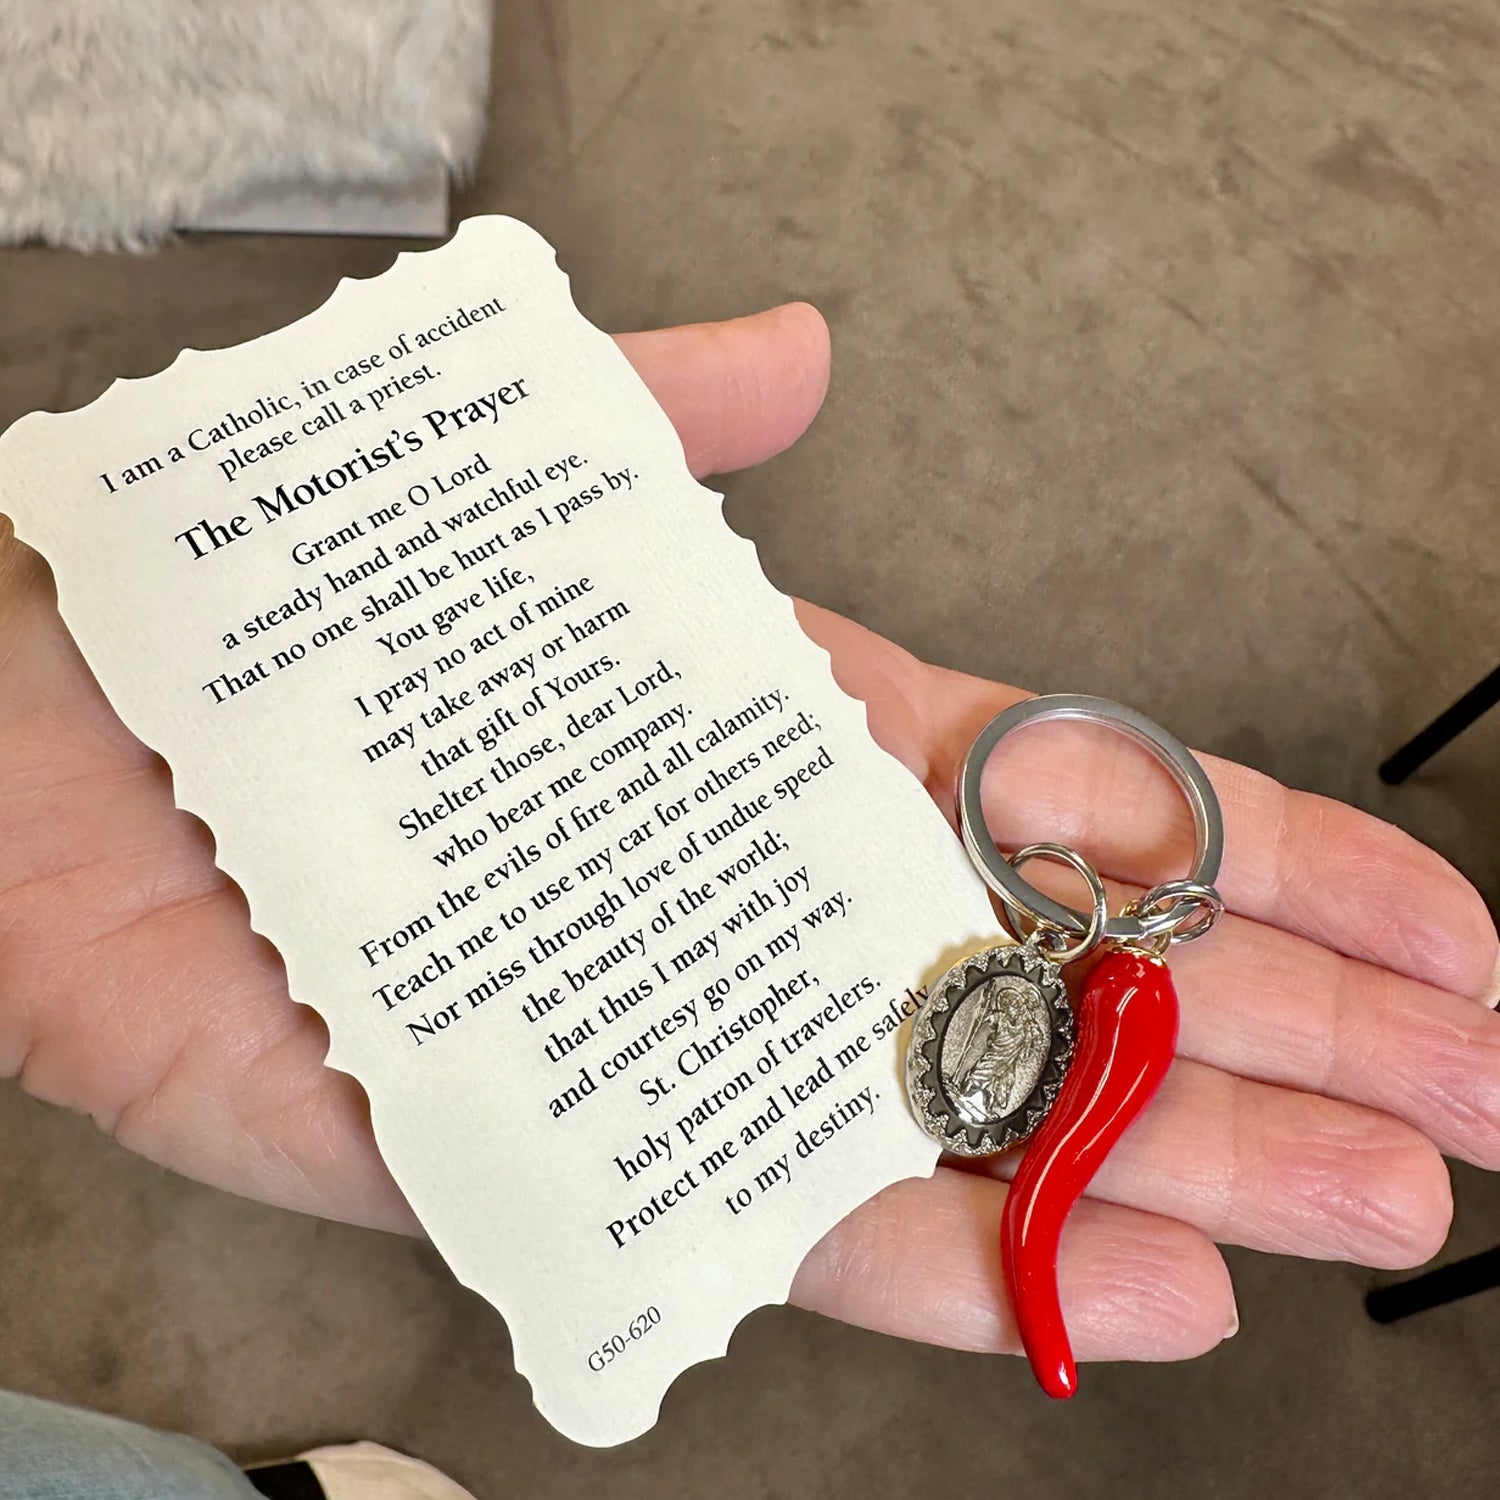 I am a Catholic, in case of accident
please call a priest.
The Motorist's Prayer
Grant me O Lord
a steady hand and watchful eye.
That no one shall be hurt as I pass by.
You gave life,
I pray no act of mine
may take away or harm
that gift of Yours.
Shelter those, dear Lord,
who bear me company.
From the evils of fire and all calamity.
Teach me to use my car for others need;
Nor miss through love of undue speed
the beauty of the world;
that thus I may with joy
and courtesy go on my way.
St. Christopher,
holy patron of travelers.
Protect me and lead me safely
to my destiny.
G50-620